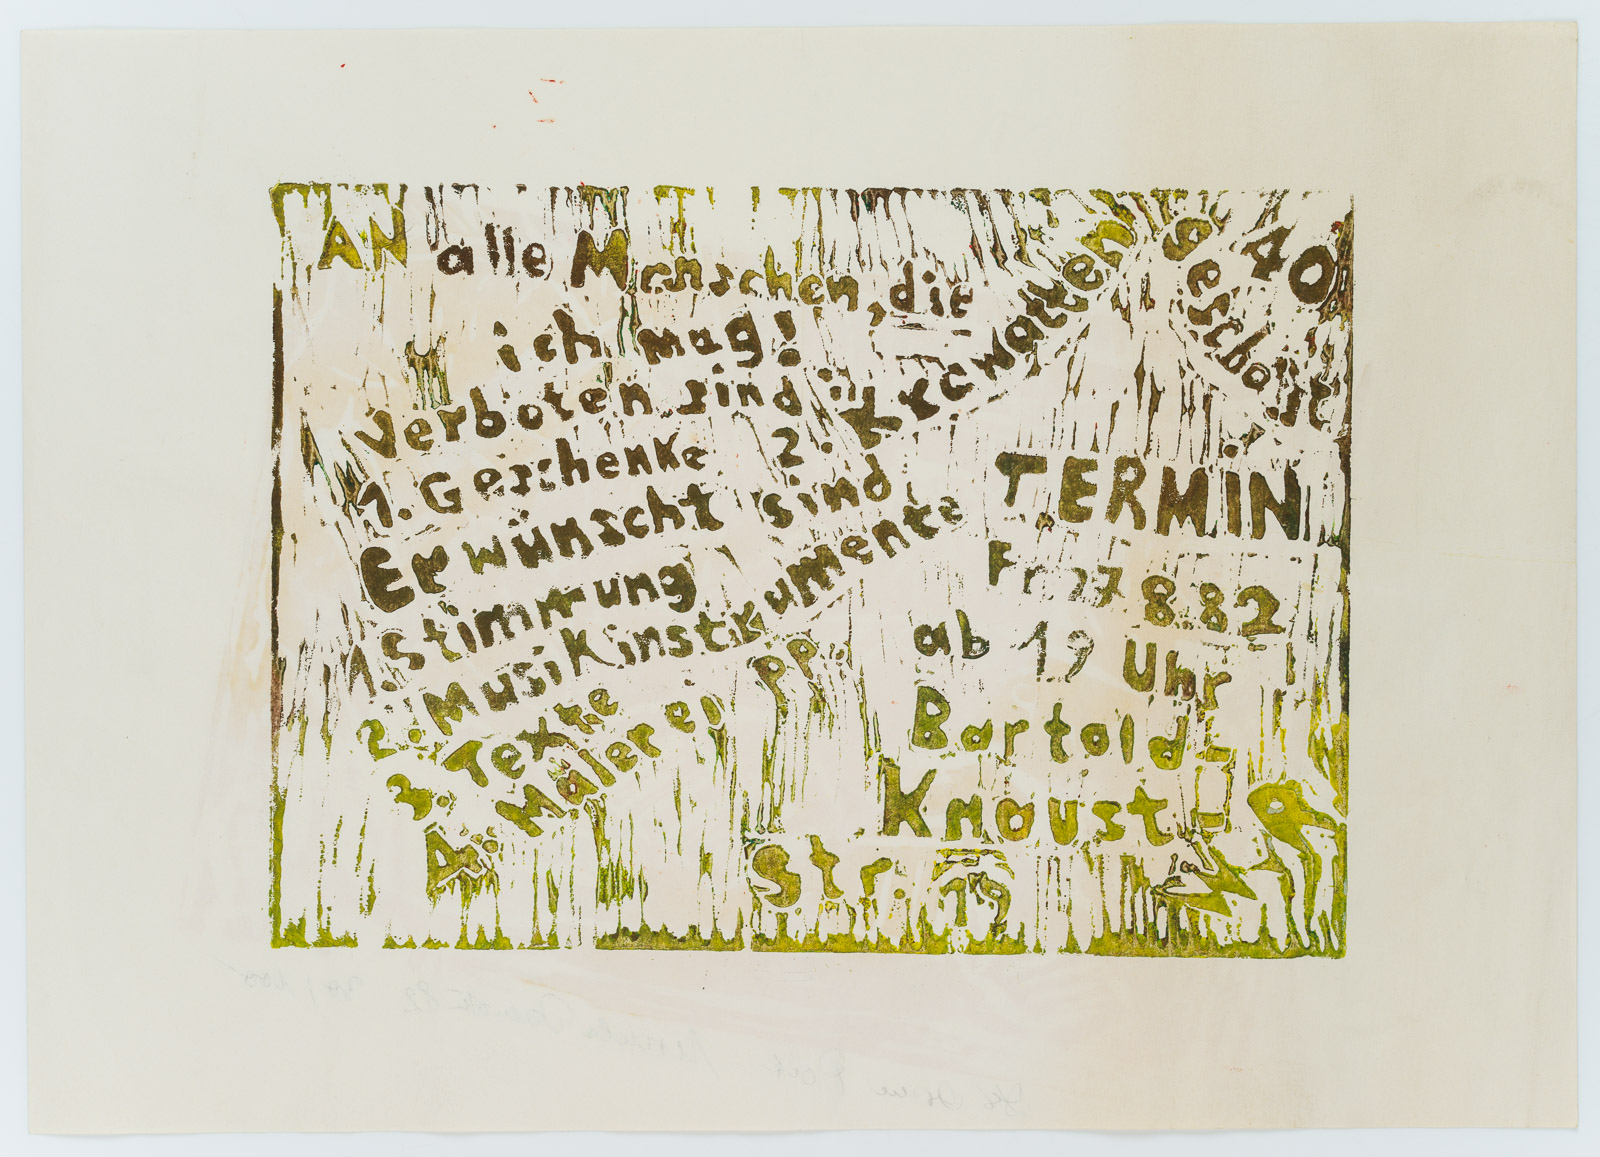 AN alle Menschen, die
ich mag!
Verboten sind:
1. Geschenke 2. Krawatten
Erwünscht sind
1. Stimmung
2. Musikinstrumente
3. Texte
4. Malerei pp.
40
TERMIN
Fr. 27 8.82
ab 19 Uhr
Bartold-
Knaust-
Str. 19